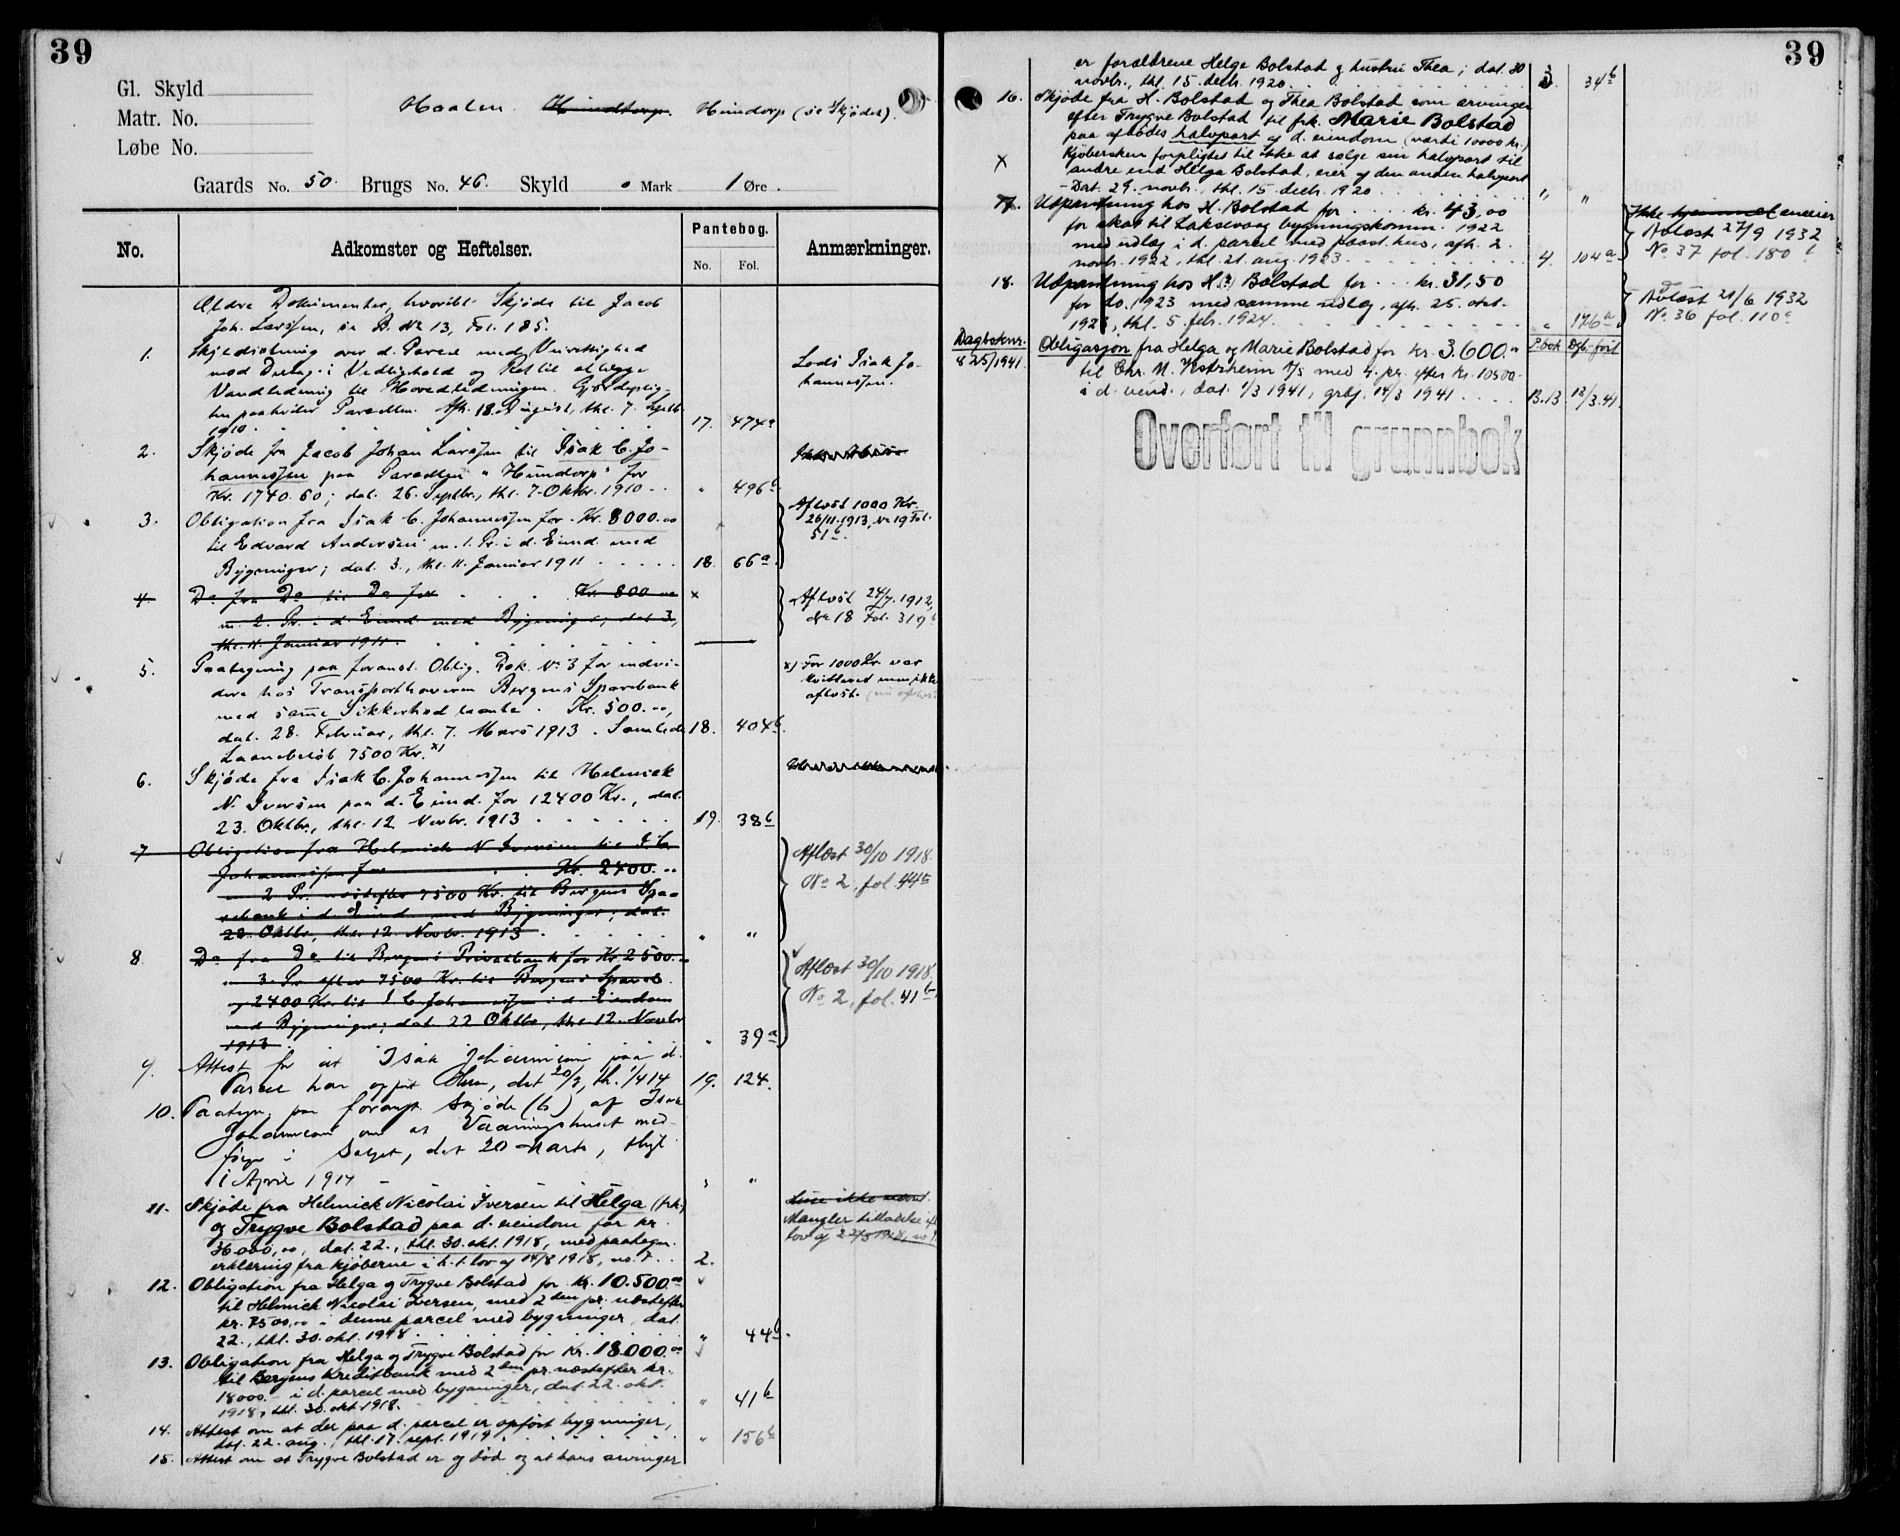 39
Gl. Skyld
Matr. No.
Løbe No.
Haalen Hundtorp. Hundorp (se Skjødet).
Gaards No. 50. Brugs No. 46. Skyld 0 Mark 1 Øre.
No. Adkomster og Heftelser. Pantebog. No. Fol. Anmærkninger.
Ældre Dokumenter, hvoribl. Skjøde til Jacob
Joh. Larssen, se P. No 13, Fol. 185.
1. Skyldseining over d. Parcel med Veirettighed
mod Deltag. i Vedligehold og Ret til at lægge
Vandledning til Hovedledningen. Gjerdeplig-
ten paahviler Parcellen. Afh. 18. August, thl. 7. Septb.
1910 17. 474a
Lods Isak Jo-
hannessen.
2. Skjøde fra Jacob Johan Larssen til Isak C. Jo-
hannessen paa Parcellen "Hundorp" for
Kr. 1740.60; dat. 26. Septbr., thl. 7. Oktbr. 1910 " 496b
3. Obligation fra Isak C. Johannessen for Kr. 8000.00
til Edvard Andersen m. 1. Pr. i d. Eiend. med
Bygninger; dat. 3., thl. 11. Januar 1911 18. 66a
Aflyst 1000 Kr.
26/11.1913, No 19 Fol.
51b.
4. Do fra Do til Do for Kr. 800.00 x
m. 2. Pr. i d. Eiend med Bygninger; dat 3,
thl. 11. Januar 1911.
Aflyst 24/7.1912,
No 18 Fol. 319b
5. Paategning paa foranst. Oblig. Dok. No 3 for endvi-
dere hos Transporthaveren Bergens Sparebank
med samme Sikkerhed laante Kr. 500.00,
dat. 28. Februar, thl. 7. Mars 1913. Samlede 18. 404b.
Laanebeløb 7500 Kr. x)
x) For 1000 Kr. var
kvitteret men ikke
aflyst.
6. Skjøde fra Isak C. Johannessen til Helmick
N. Iversen paa d. Eiend. for 12400 Kr., dat.
23. Oktbr., thl. 12 Novbr. 1913 19. 38b
7 Obligation fra Helmick N Iversen til I. C.
Johannessen for Kr. 2400.00
m 2 Pr. næstefter 7500 Kr. til Bergens Spa-
rebank i d. Eiend med Bygninger; dat.
22. Oktbr, thl. 12. Novbr. 1913 " "
Aflæst 30/10 1918.
No 2, fol. 44a
8. Do fra Do til Bergens Privatbank for Kr. 2500.-
m 3 Pr efter 7500 Kr. til Bergens Spareb.
og 2400 Kr. til I. C. Johannessen i d. Eiendom
med Bygninger; dat 22 Oktbr, thl. 12. Novbr
1913 " 39a
Aflæst 30/10 1918.
No 2, fol. 41b
9. Attest for at Isak Johannesen paa d.
Parcel har opført Hus, dat 20/3, th. 1/4 14 19. 124.
10. Paategn. paa foranst. Skjøde (6) af Isak
Johannesen om at Vaaningshuset med-
følger i Salget, dat 20 Marts, thgl
1 April 1914 " "
11. Skjøde fra Helmick Nicolai Iversen til Helga (frk.)
og Trygve Bolstad paa d. eiendom for kr.
36000,00, dat. 22., thl. 30. okt. 1918, med paategn.
erklæring fra kjøberne i h. t. lov af 14/8 1918, no. 7 2.
Mangler tilladelse eft.
lov af
12. Obligation fra Helga og Trygve Bolstad for kr. 10.500.00
til Helmick Nicolai Iversen, med 2den pr. næstefter
kr. 7500,00 i denne parcel med bygninger, dat.
22., thl. 30. okt. 1918 " 44b.
13. Obligation fra Helga og Trygve Bolstad for Kr. 18.000.00
til Bergens Kreditbank med 2den pr. næstefter kr.
18000.- i d. parcel med bygninger, dat. 22. okt.
1918, thl. 30. okt 1918. " 41b
14. Attest om at der paa d. parcel er opført bygninger,
dat. 22. aug., thl. 17. sept. 1919 " 156b
15. Attest om at Trygve Bolstad er og død og at hans arvinger
39
er forældrene Helge Bolstad og hustru Thea; dat. 30
novbr., thl. 15. decbr. 1920. 3. 34b
16. Skjøde fra H. Bolstad og Thea Bolstad som arvinger
efter Trygve Bolstad til frk. Marie Bolstad
paa afdødes halvpart af d. eiendom (værdi 10000 kr.)
x Kjøbersken forpligtet til ikke at sælge sin halvpart til
andre end Helga Bolstad, eier af den anden halvpart
- Dat. 29. novbr., thl. 15. decbr. 1920 " "
17. Utpantning hos H. Bolstad for kr. 43,00
for skat til Laksevaag bygningskomm. 1922
med utlæg i d. parcel med paast. hus, afh. 2.
novbr. 1922, thl. 21. aug. 1923 4. 104a
Ikke hjemmel eneeier
Avlæst 27/9 1932
No 37 fol. 180b
18. Utpantning hos H. (?) Bolstad for kr. 31,50
for do. 1923 med samme utlæg, afh. 25. okt.
1923, thl. 5. febr. 1924. " 126a
Do
Avlæst 21/6 1932
No 36 fol. 110a
Dagboknr. 825/1941. Obligasjon fra Helga og Marie Bolstad for kr. 3.600.00 P.bok Dgb.-ført
til Chr. N. Ystrheim A/S med 4. pr. efter kr. 10500.-
i d. eiend., dat. 1/3 1941, grbf. 12/3 1941 B.13. 12/3.41.
Overført til grunnbok